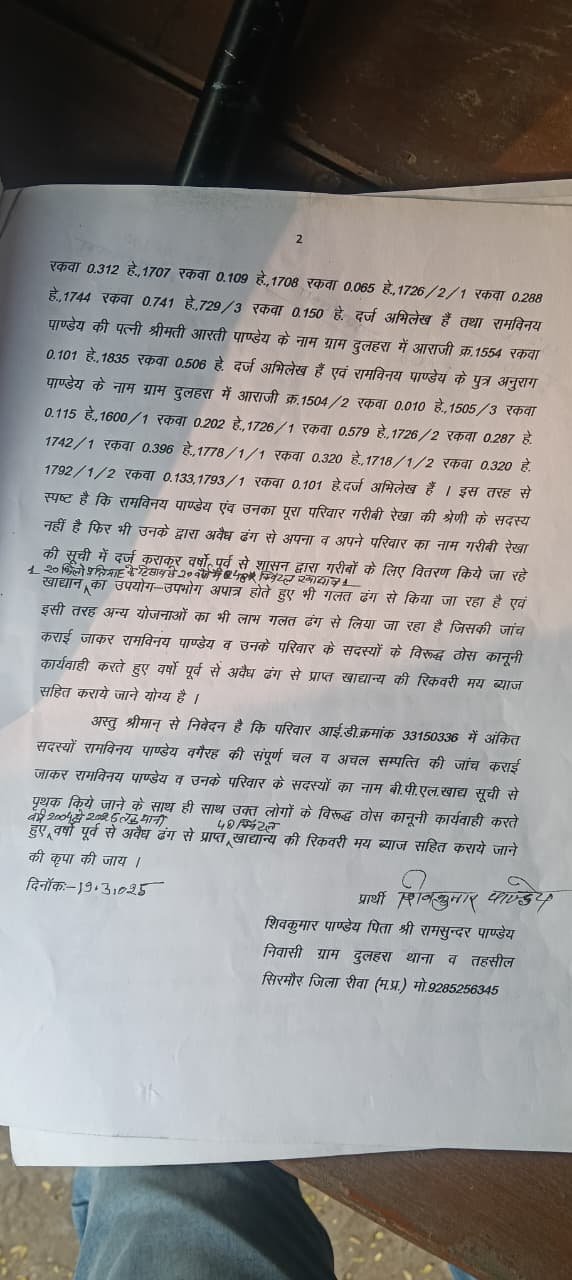 2
रकवा 0.312 हे.,1707 रकवा 0.109 हे.,1708 रकवा 0.065 हे.,1726/2/1 रकवा 0.288
हे.,1744 रकवा 0.741 हे.,729/3 रकवा 0.150 हे. दर्ज अभिलेख हैं तथा रामविनय
पाण्डेय की पत्नी श्रीमती आरती पाण्डेय के नाम ग्राम दुलहरा में आराजी क्र.1554 रकवा
0.101 हे.,1835 रकवा 0.506 हे. दर्ज अभिलेख हैं एवं रामविनय पाण्डेय के पुत्र अनुराग
पाण्डेय के नाम ग्राम दुलहरा में आराजी क्र.1504/2 रकवा 0.010 हे.,1505/3 रकवा
0.115 हे.,1600/1 रकवा 0.202 हे.,1726/1 रकवा 0.579 हे.,1726/2 रकवा 0.287 हे.
1742/1 रकवा 0.396 हे.,1778/1/1 रकवा 0.320 हे.,1718/1/2 रकवा 0.320 हे.
1792/1/2 रकवा 0.133,1793/1 रकवा 0.101 हे.दर्ज अभिलेख हैं । इस तरह से
स्पष्ट है कि रामविनय पाण्डेय एंव उनका पूरा परिवार गरीबी रेखा की श्रेणी के सदस्य
नहीं है फिर भी उनके द्वारा अवैध ढंग से अपना व अपने परिवार का नाम गरीबी रेखा
की सूची में दर्ज कराकर वर्षो पूर्व से शासन द्वारा गरीबों के लिए वितरण किये जा रहे
20 किलो प्रतिमाह के हिसाब से 20 वर्ष में
खाद्यान का उपयोग–उपभोग अपात्र होते हुए भी गलत ढंग से किया जा रहा है एवं
इसी तरह अन्य योजनाओं का भी लाभ गलत ढंग से लिया जा रहा है जिसकी जांच
कराई जाकर रामविनय पाण्डेय व उनके परिवार के सदस्यों के विरूद्ध ठोस कानूनी
कार्यवाही करते हुए वर्षो पूर्व से अवैध ढंग से प्राप्त खाद्यान्य की रिकवरी मय ब्याज
सहित कराये जाने योग्य है ।
अस्तु श्रीमान् से निवेदन है कि परिवार आई.डी.क्रमांक 33150336 में अंकित
सदस्यों रामविनय पाण्डेय वगैरह की संपूर्ण चल व अचल सम्पत्ति की जांच कराई
जाकर रामविनय पाण्डेय व उनके परिवार के सदस्यों का नाम बी.पी.एल.खाद्य सूची से
पृथक किये जाने के साथ ही साथ उक्त लोगों के विरूद्ध ठोस कानूनी कार्यवाही करते
48 क्विंटल
हुए वर्षो पूर्व से अवैध ढंग से प्राप्त खाद्यान्य की रिकवरी मय ब्याज सहित कराये जाने
की कृपा की जाय ।
दिनॉक:-19.3.025
प्रार्थी शिवकुमार पाण्डेय
शिवकुमार पाण्डेय पिता श्री रामसुन्दर पाण्डेय
निवासी ग्राम दुलहरा थाना व तहसील
सिरमौर जिला रीवा (म.प्र.) मो.9285256345